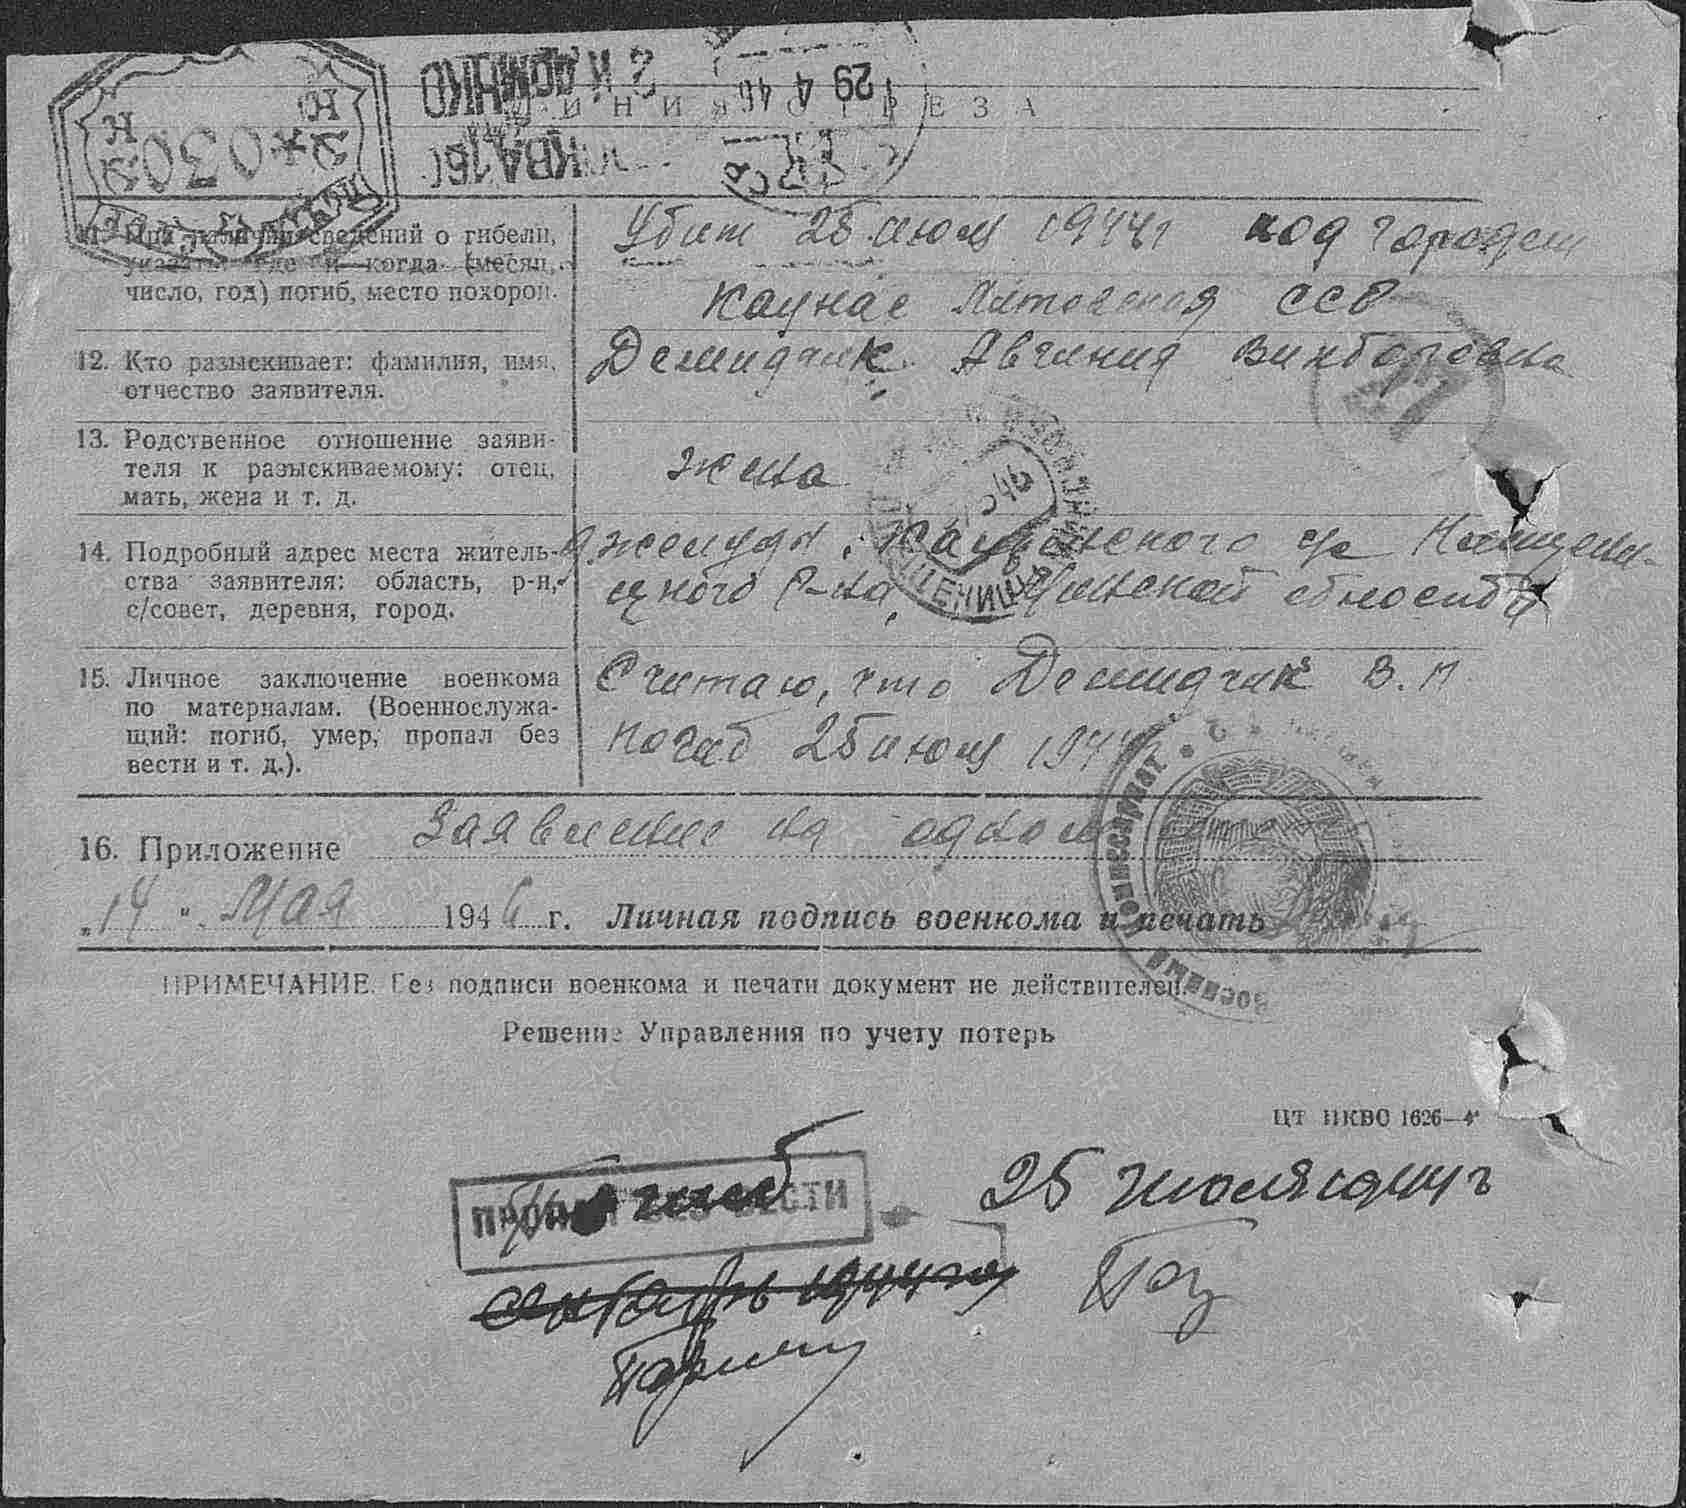 МОСКВА 160
29 4 46
ЛИНИЯ ОТРЕЗА
11. При наличии сведений о гибели, указать: где и когда (месяц, число, год) погиб, место похорон.
Убит 25 июля 1944 г под городом
Каунас Литовская ССР
12. Кто разыскивает: фамилия, имя,
отчество заявителя.
Демидчик Авгиния Викторовна
13. Родственное отношение заяви-
теля к разыскиваемому: отец,
мать, жена и т. д.
жена
14. Подробный адрес места житель-
ства заявителя: область, р-н,
с/совет, деревня, город.
д. Желуды, с/с
р-на, Минской области
15. Личное заключение военкома
по материалам. (Военнослужа-
щий: погиб, умер, пропал без
вести и т. д.).
Считаю, что Демидчик В. И
погиб 25 июля 1944
16. Приложение Заявление на одном
"14" Мая 1946 г. Личная подпись военкома и печать
ПРИМЕЧАНИЕ. Без подписи военкома и печати документ не действителен.
Решение Управления по учету потерь
ЦТ НКВО 1626—4
ПРОПАЛ БЕЗ ВЕСТИ
погиб 25 июля 1944 г
сентябрь 1944 го